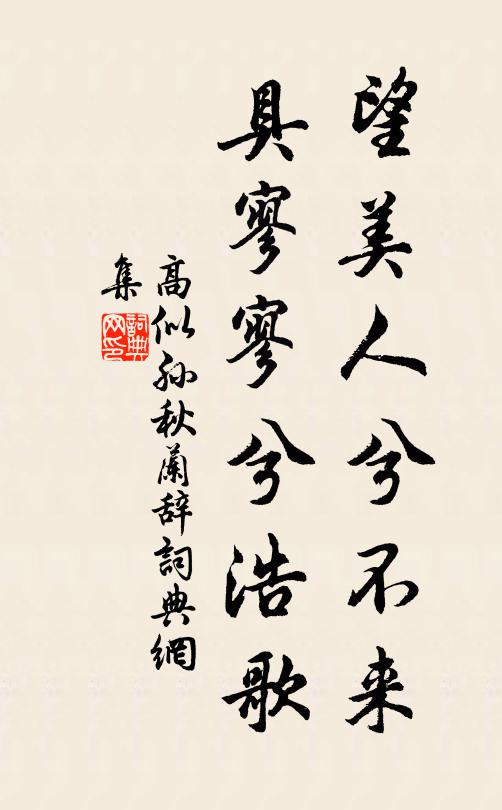 望美人兮不来
具寥寥兮浩歌
高似孙秋蘭辞詞典網
集
詞典
网印